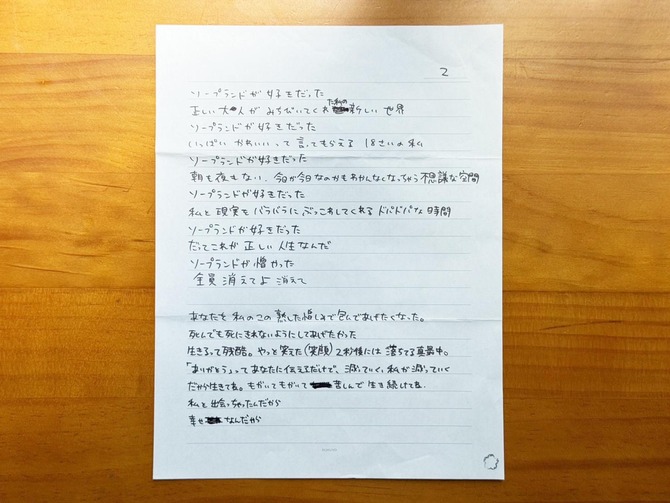 2
ソープランドが好きだった
正しい大人がみちびいてくれた私の新しい世界
ソープランドが好きだった
いっぱいかわいいって言ってもらえる 18さいの私
ソープランドが好きだった
朝も夜もない、今日が今日なのかもわかんなくなっちゃう不思議な空間
ソープランドが好きだった
私と現実をバラバラにぶっこわしてくれるドバドバな時間
ソープランドが好きだった
だってこれが正しい人生なんだ
ソープランドが憎かった
全員消えてよ 消えて
あなたを私のこの熟した憎しみで包んであげたくなった。
死んでも死にきれないようにしてあげたかった
生きるって残酷。やっと笑えた(笑顔)2秒後には落ちてる真最中。
「ありがとう」ってあなたに伝えるだけで、減っていく、私が減っていく
だから生きてね。もがいてもがいて苦しんで生き続けてね
私と出会っちゃったんだから
幸せなんだから